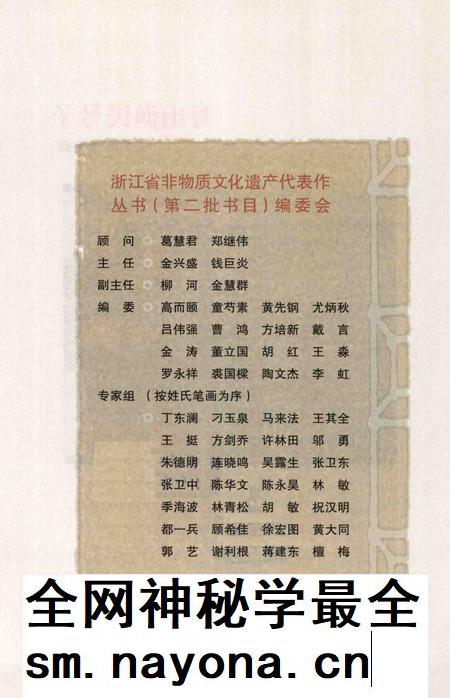 浙江省非物质文化遗产代表作
丛书（第二批书目）编委会
顾 问 葛慧君 郑继伟
主 任 金兴盛 钱巨炎
副主任 柳 河 金慧群
编 委 高而颐 童芍素 黄先钢 尤炳秋
吕伟强 曹 鸿 方培新 戴 言
金 涛 董立国 胡 红 王 淼
罗永祥 裘国樑 陶文杰 李 虹
专家组 （按姓氏笔画为序）
丁东澜 刁玉泉 马来法 王其全
王 挺 方剑乔 许林田 邬 勇
朱德明 连晓鸣 吴露生 张卫东
张卫中 陈华文 陈永昊 林 敏
季海波 林青松 胡 敏 祝汉明
都一兵 顾希佳 徐宏图 黄大同
郭 艺 谢利根 蒋建东 檀 梅
全网神秘学最全
sm.nayona.cn